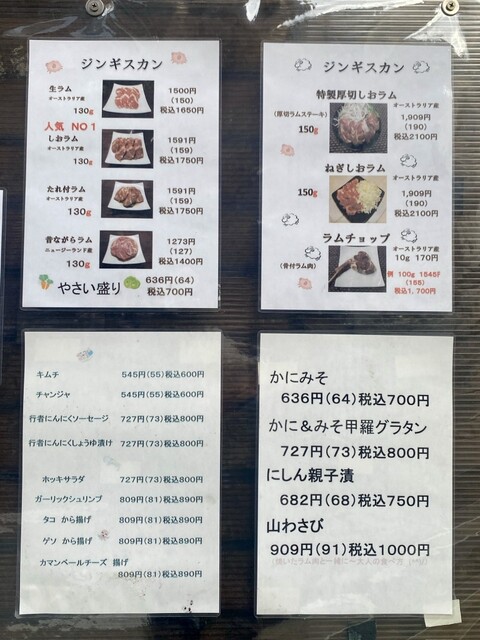 ジンギスカン
生ラム
オーストラリア産
130g
1500円
(150)
税込1650円
人気 NO1
しおラム
オーストラリア産
130g
1591円
(159)
税込1750円
たれ付ラム
オーストラリア産
130g
1591円
(159)
税込1750円
昔ながらラム
ニュージーランド産
130g
1273円
(127)
税込1400円
やさい盛り
636円(64)
税込700円
ジンギスカン
特製厚切しおラム
(厚切ラムステーキ)
150g
オーストラリア産
1,909円
(190)
税込2100円
ねぎしおラム
150g
オーストラリア産
1,909円
(190)
税込2100円
ラムチョップ
(骨付ラム肉)
オーストラリア産
10g 170円
例 100g 1545円
(155)
税込1,700円
キムチ 545円(55)税込600円
チャンジャ 545円(55)税込600円
行者にんにくソーセージ 727円(73)税込800円
行者にんにくしょうゆ漬け 727円(73)税込800円
ホッキサラダ 727円(73)税込800円
ガーリックシュリンプ 809円(81)税込890円
タコ から揚げ 809円(81)税込890円
ゲソ から揚げ 809円(81)税込890円
カマンベールチーズ 揚げ
809円(81)税込890円
かにみそ
636円(64)税込700円
かに&みそ甲羅グラタン
727円(73)税込800円
にしん親子漬
682円(68)税込750円
山わさび
909円(91)税込1000円